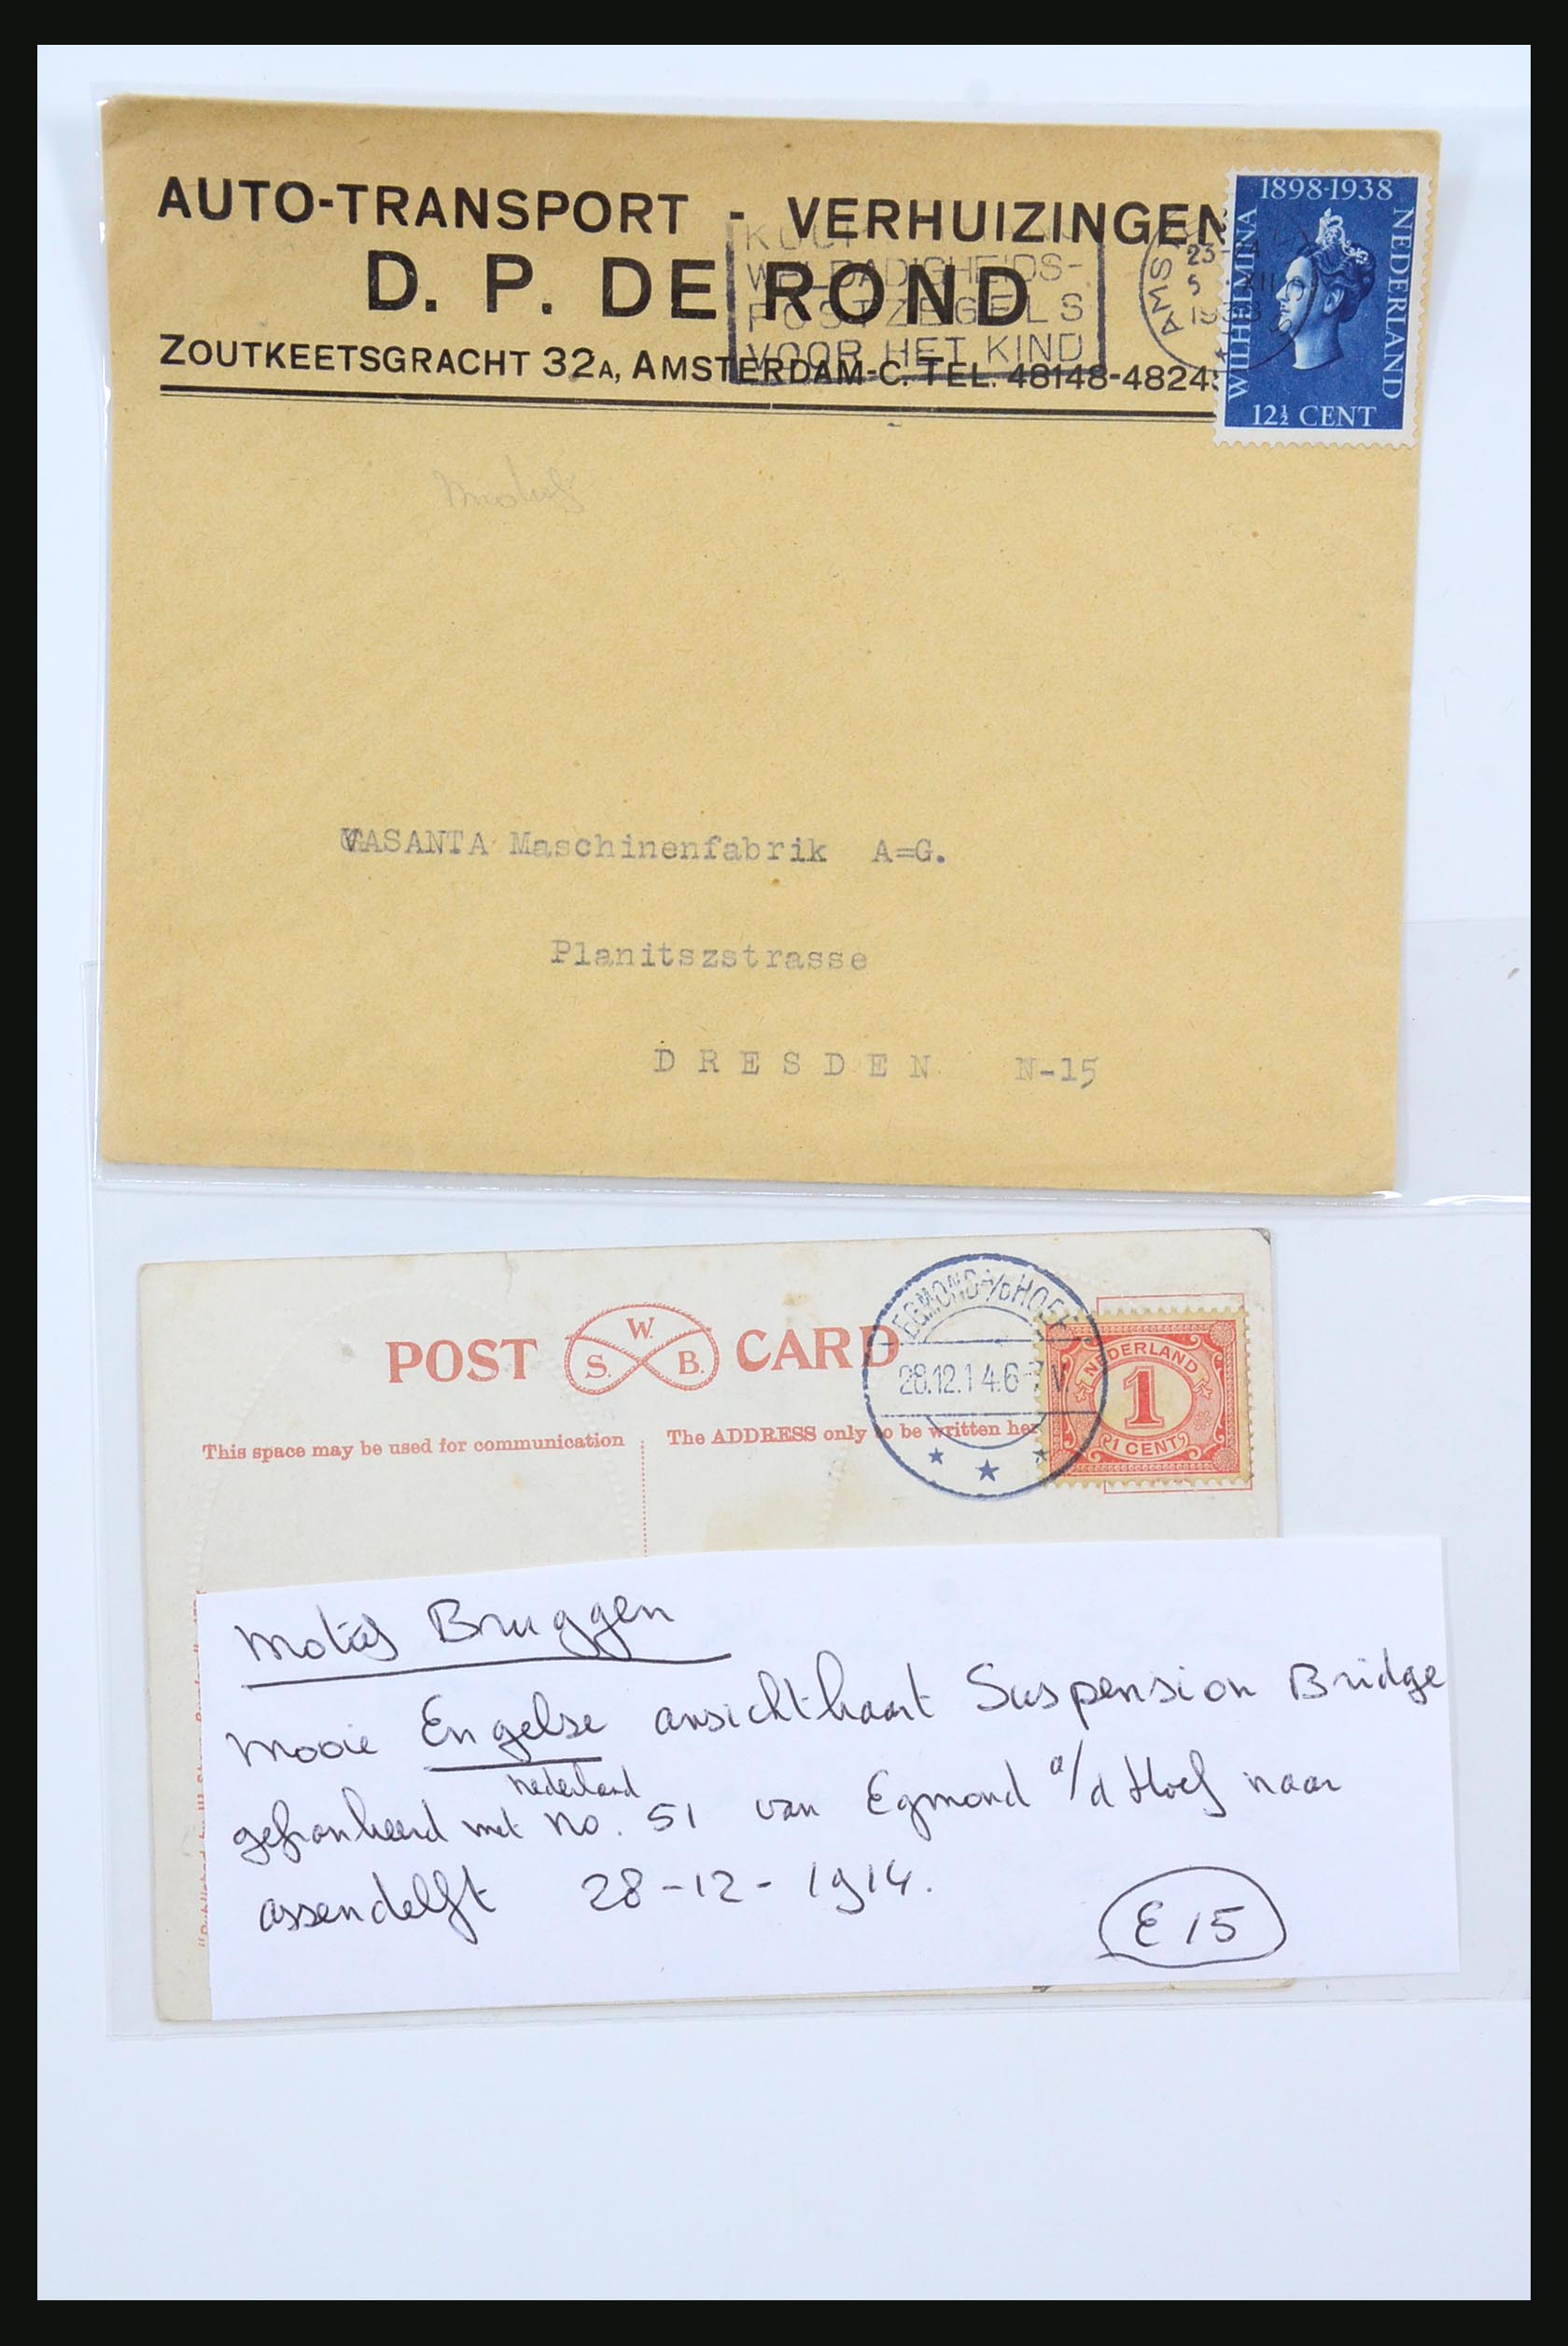 AUTO-TRANSPORT - VERHUIZINGEN
D. P. DE ROND
ZOUTKEETSGRACHT 32A, AMSTERDAM-C. TEL. 48148-4824
KOOP
WELDADIGHEIDS-
POSTZEGELS
VOOR HET KIND
AMST
23-
5 XII
1938
1898-1938
WILHELMINA
NEDERLAND
12½ CENT
VASANTA Maschinenfabrik A=G.
Planitszstrasse
DRESDEN N-15
POST S. W. B. CARD
EGMOND a/d HOEF
28.12.14.6-7 V
NEDERLAND
1
1 CENT
This space may be used for communication
The ADDRESS only to be written her
Motief Bruggen
Mooie Engelse ansichtkaart Suspension Bridge
nederland
gefrankeerd met no. 51 van Egmond a/d Hoef naar
assendelft 28-12-1914.
E 15